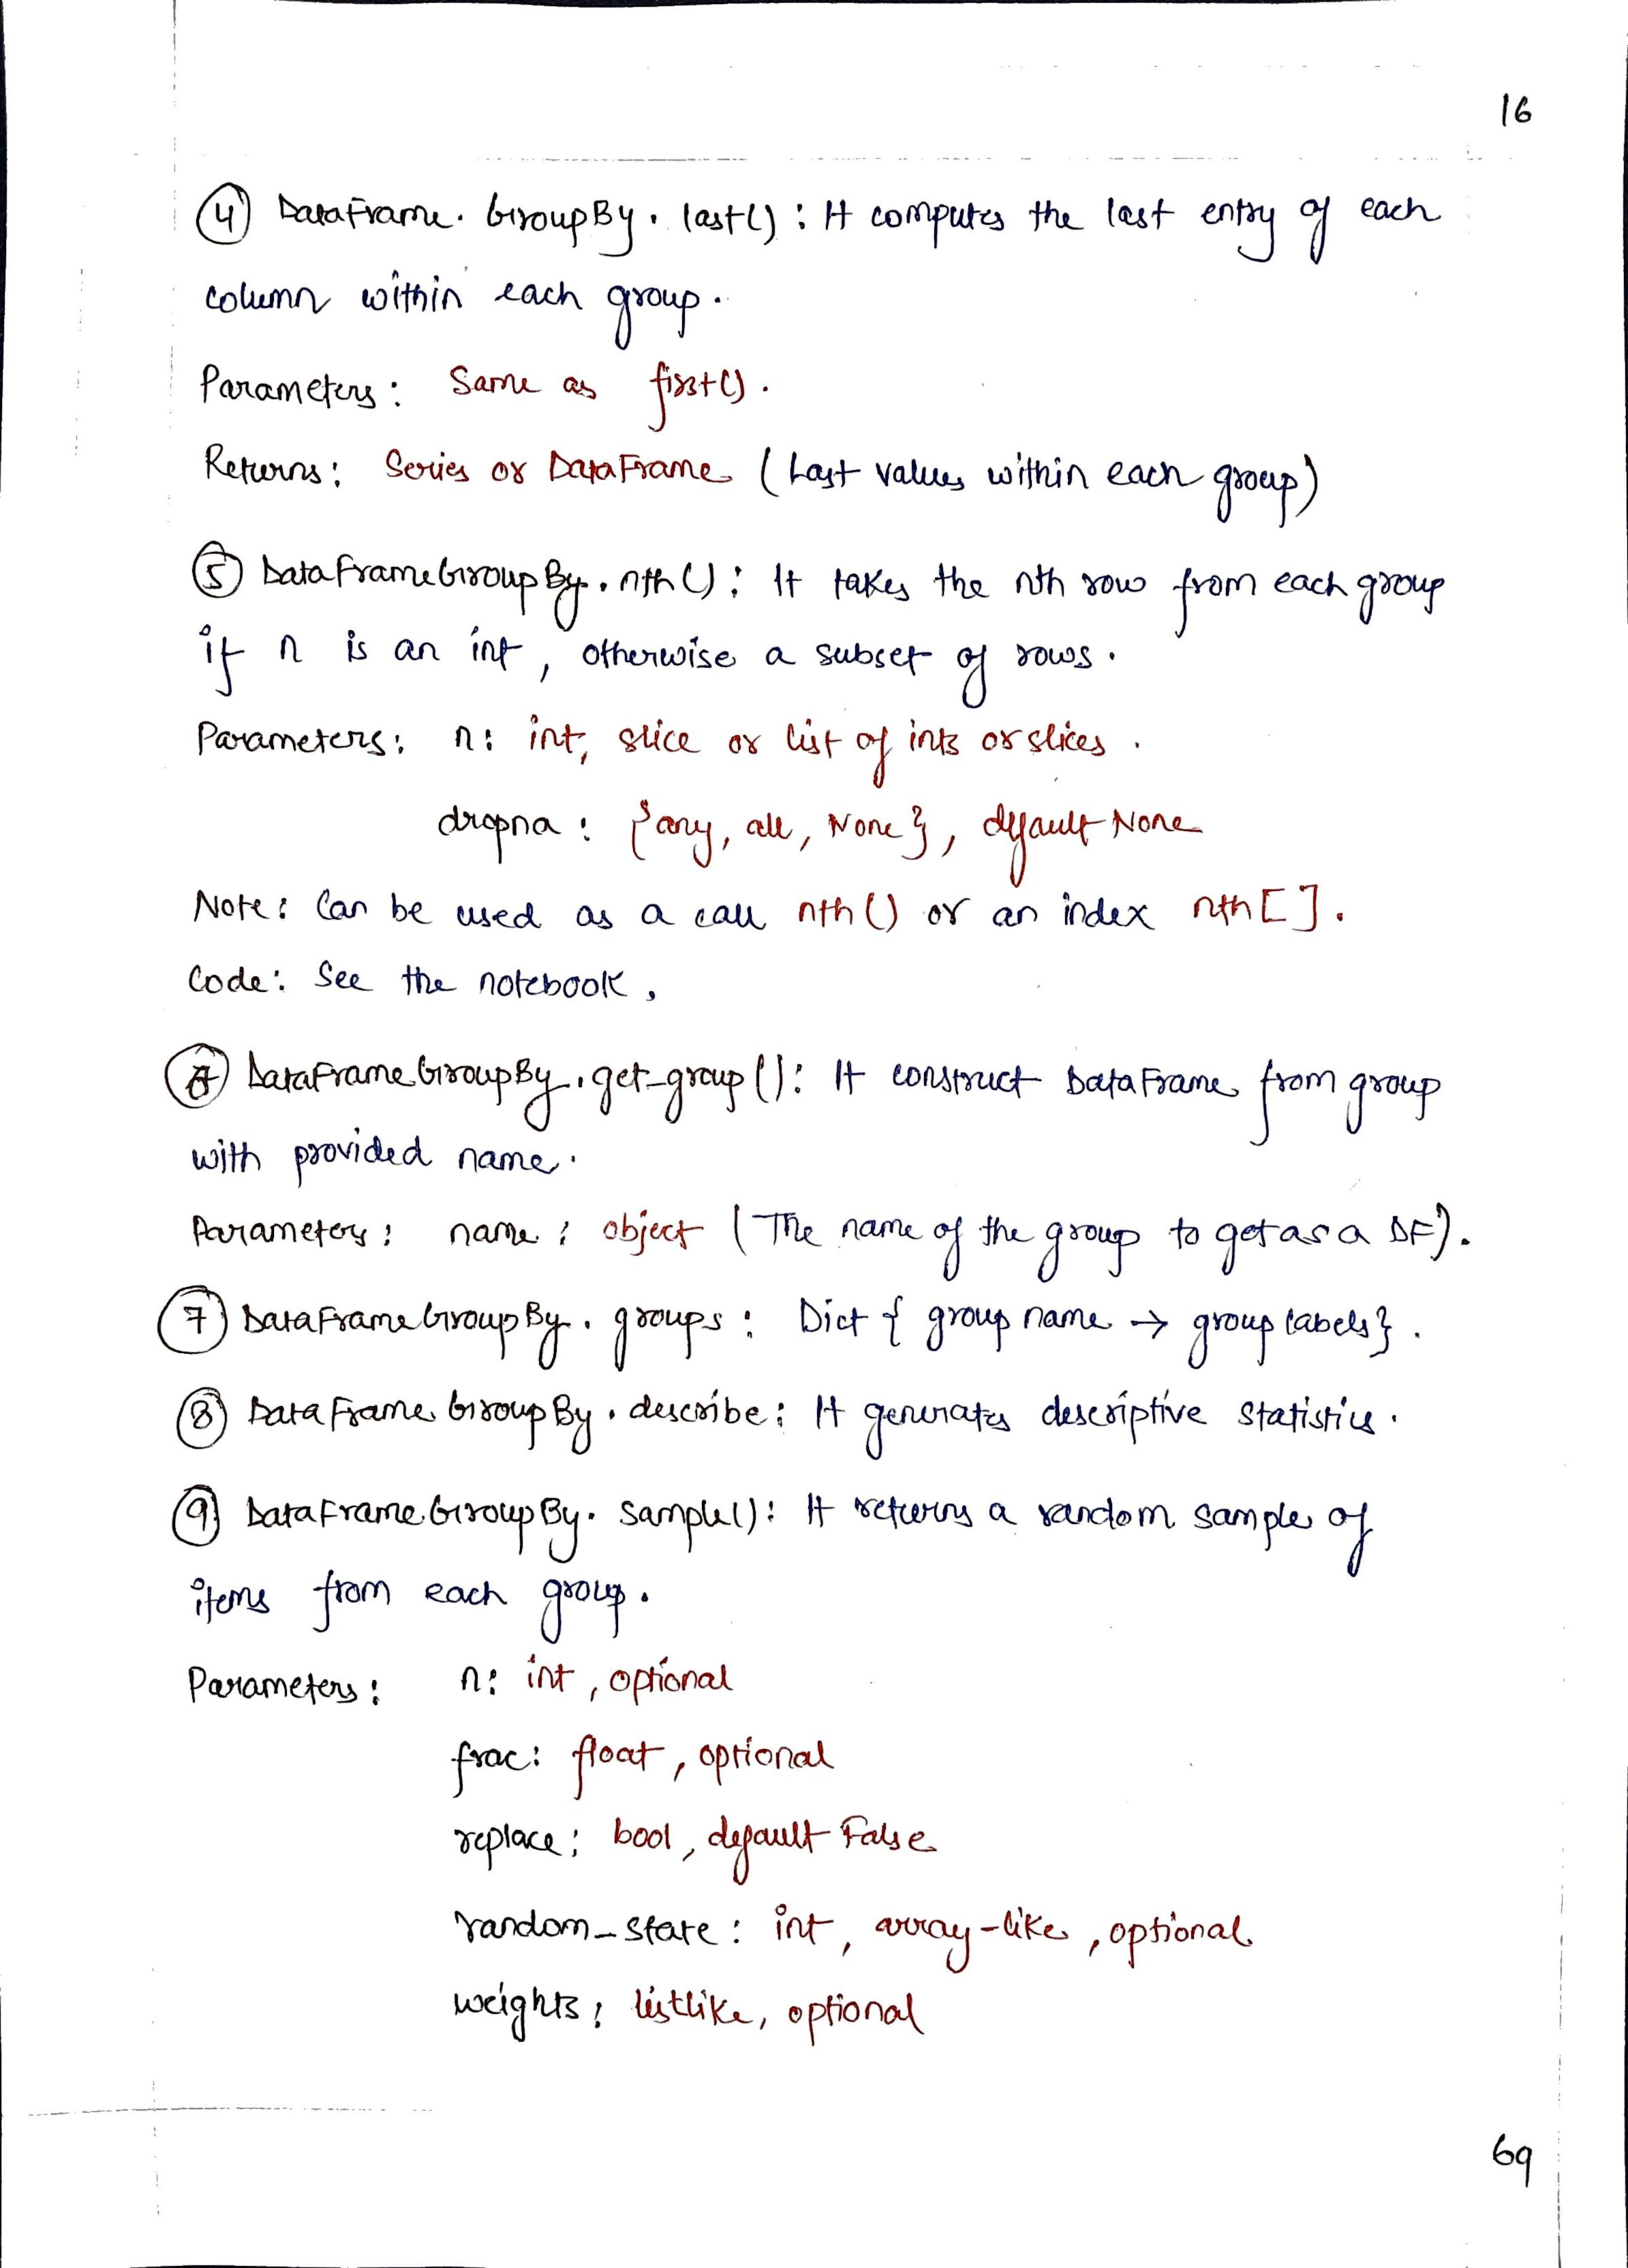 16
④ DataFrame. GroupBy. last() : It computes the last entry of each
column within each group.
Parameters: Same as first().
Returns: Series or DataFrame (Last values within each group)
⑤ DataFrameGroupBy. nth(): It takes the nth row from each group
if n is an int, otherwise a subset of rows.
Parameters: n: int, slice or list of ints or slices.
dropna: {any, all, None}, default None
Note: Can be used as a call nth() or an index nth[].
Code: See the notebook.
DataFrameGroupBy. get_group(): It construct DataFrame from group
with provided name.
Parameters: name: object (The name of the group to get as a DF).
⑦ DataFrameGroupBy. groups: Dict { group name → group labels}.
⑧ DataFrameGroupBy. describe: It generates descriptive statistics.
⑨ DataFrameGroupBy. sample(): It returns a random sample of
items from each group.
Parameters: n: int, optional
frac: float, optional
replace: bool, default False
random_state: int, array-like, optional
weights: listlike, optional
69